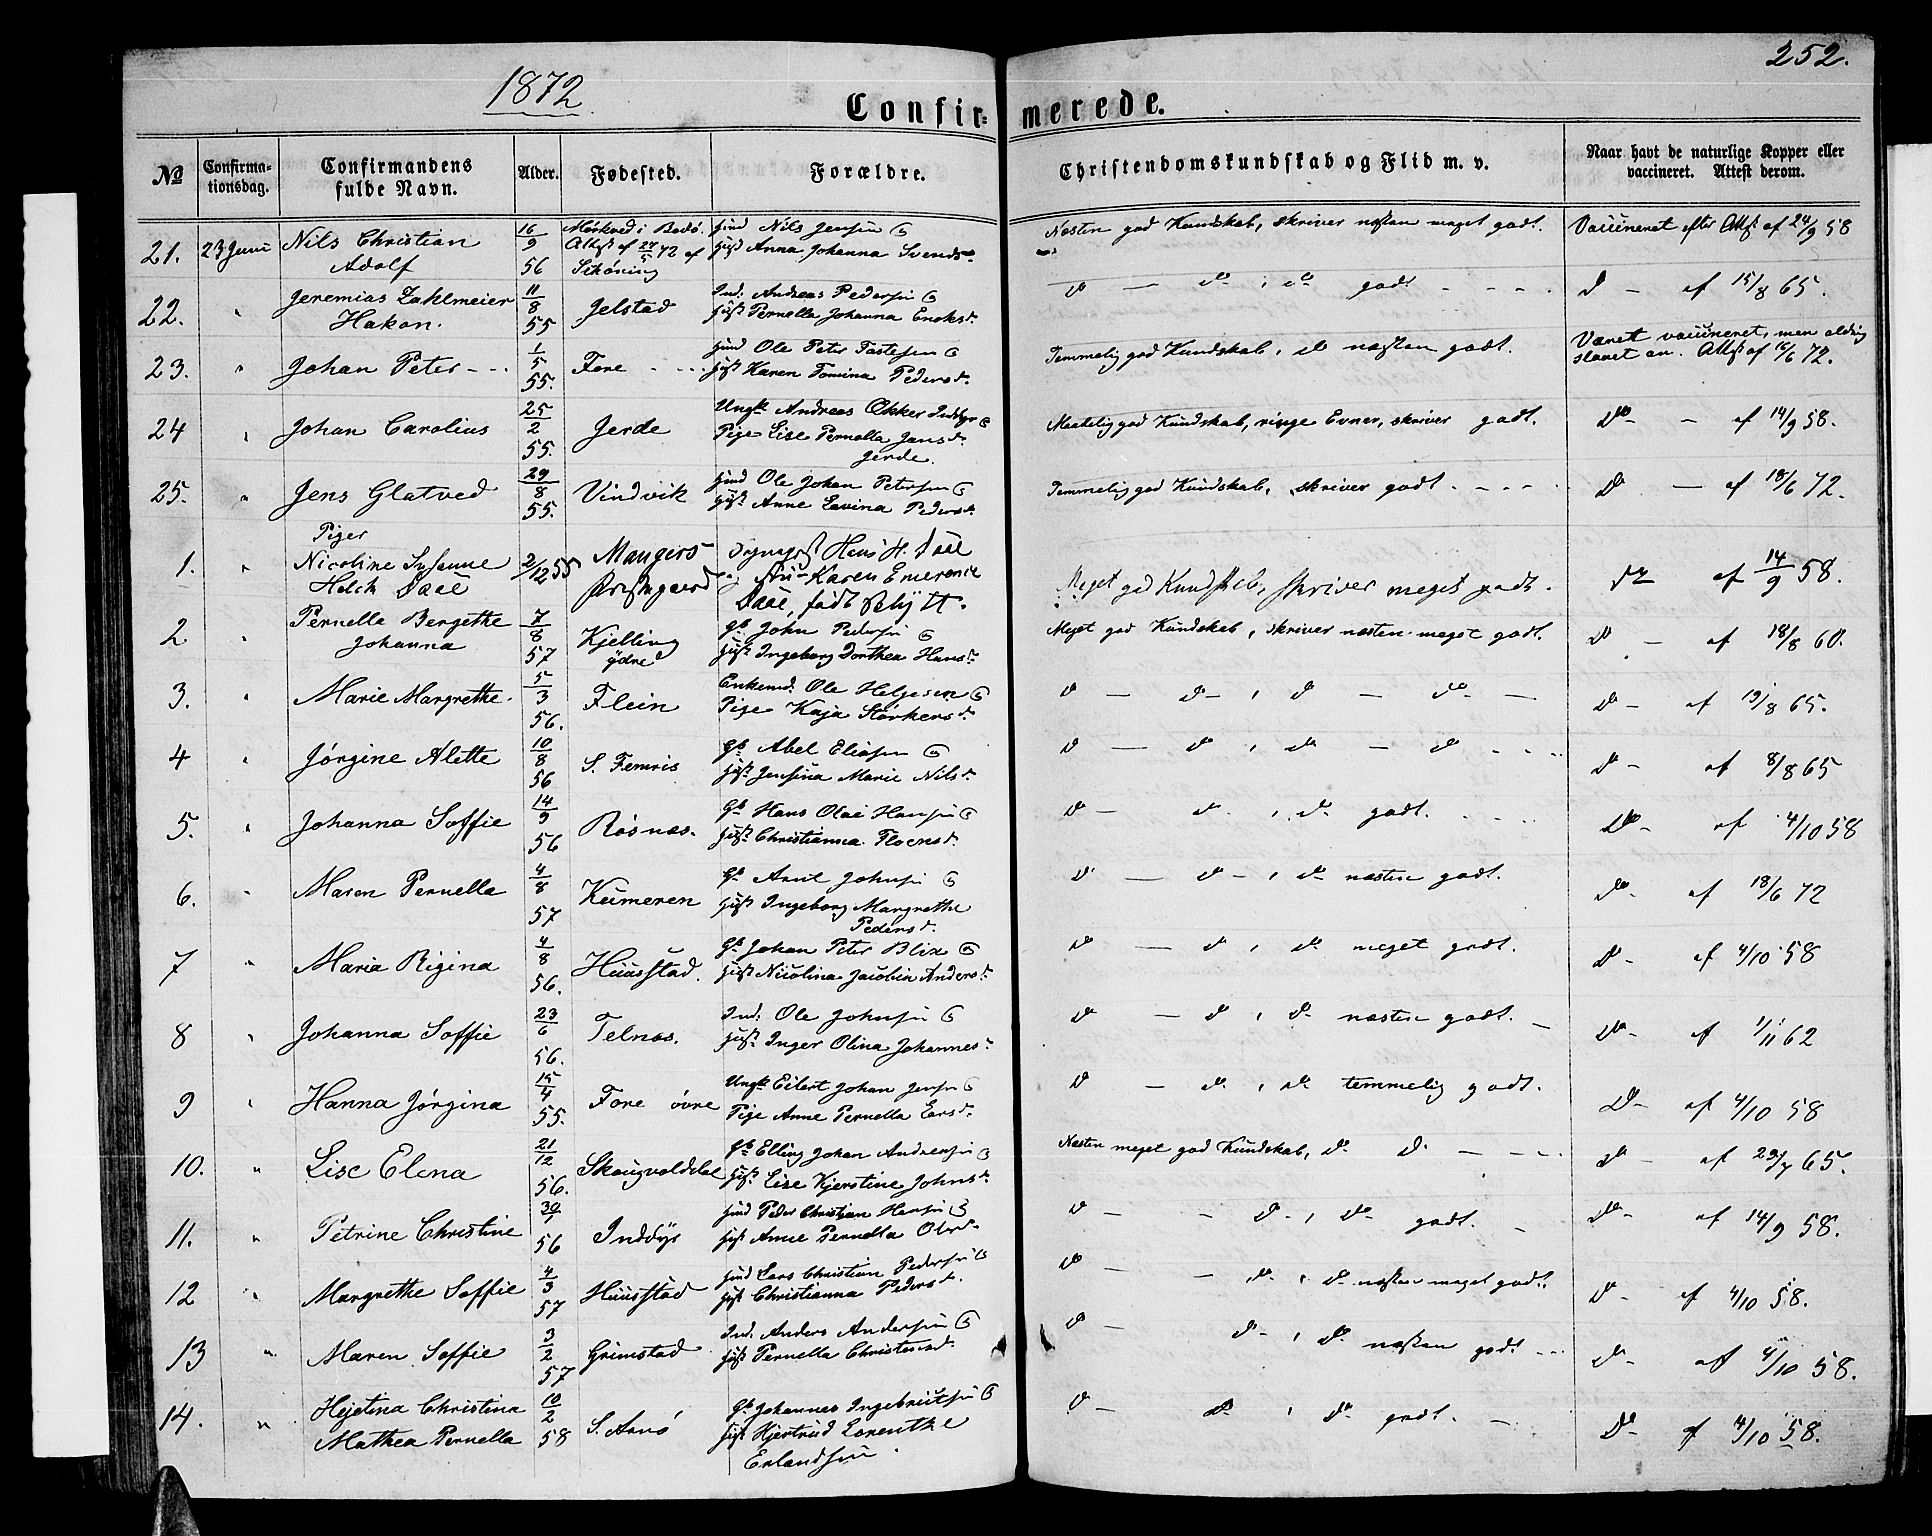 252.
1872
Confirmerede.
№ Confirmationsdag. Confirmandens fulde Navn. Alder. Fødested. Forældre. Christendomskundskab og Flid m. v. Naar havt de naturlige Kopper eller vaccineret. Attest derom.
21. 23 Juni Nils Christian Adolf 16/9 56 Mørkved i Bodø. Attest af 27/5 72 af Nils Jensen Anna Johanna Svendsd. Næsten god Kundskab, skriver næsten meget godt. Vaccineret efter Attest af 24/9 58
22. " Jeremias Zahlmeier Hakon. 11/8 55 Jelstad Ind. Andreas Pedersen Pernella Johanna Enoksd. D — D, D godt D — af 15/8 65.
23. " Johan Peter 1/5 55. Fore Ind Ole Peter Tostesen Karen Tomina Pedersd. Temmelig god Kundskab, D næsten godt. Været vaccineret, men aldrig slaaet an. Attest af 16/6 72.
24 " Johan Carolius 25/2 55. Jerde Ungk. Andreas Økker Inddyr Pige Lise Pernella Jansd. Jerde. Maatelig god Kundskab, ringe Evner, skriver godt. Do — af 14/9 58.
25. " Jens Glatved 29/8 55. Vindvik Ind Ole Johan Petersen Anne Lavina Pedersd. Temmelig god Kundskab, skriver godt D — af 18/6 72.
Piger
1. " Nicoline Susanne Helch Daae 2/12 55 Mangers Præstegaard Hans H. Daae og Fru Karen Emerense Daae, født Schytt. Meget god Kundskab, skriver meget godt. D af 14/9 58.
2 " Pernelle Bergethe Johanna 7/8 57 Kjelling ydre Gb. John Pedersen Ingeborg Dorthea Hansd. Meget god Kundskab, skriver næsten meget godt. D — af 18/8 60.
3. " Marie Margrethe 5/3 56. Flein Enkemd. Ole Helgesen Pige Kaja Størkersd. D — D, D — D D — af 19/8 65.
4 " Jørgine Alette 10/8 56 S. Femris Gb. Abel Eliasen Jensina Marie Nilsd. D — D, D — D D — af 8/8 65
5. " Johanna Soffie 14/9 56 Røsnes. Gb. Hans Olai Hansen Christianna Floensd. D — D, D godt. Do — af 4/10 58
6. " Maren Pernella 4/8 57 Keimeren Gb. Arnt Johnsen Ingeborg Margrethe Pedersd. D — D, D næsten godt. D — af 18/6 72
7 " Maria Rigina 4/8 56. Huusstad. Gb. Johan Peter Blix Nicolina Jacobin Andersd. D — D, D meget godt. D — af 4/10 58
8 " Johanna Soffie 23/6 56. Telnes. Ind. Ole Johnsen Inger Olina Johannesd. D — D, D næsten godt. D — af 1/11 62
9 " Hanna Jørgina 15/4 55. Fore øvre Ungk. Eilert Johan Jensen Pige Anne Pernella Larsd. D — D, D temmelig godt. D — af 4/10 58
10. " Lise Elena 21/12 56. Skougvoldda Gb. Elling Johan Andersen Lise Kjerstine Johnsd. Næsten meget god Kundskab, D D D — af 29/7 65.
11. " Petrine Christine 30/1 56 Inddyr Ind Peder Christian Hansen Anne Pernella Olsd. D — D, D godt. D — af 14/9 58.
12 " Margrethe Soffie 4/3 57 Huusstad Ind Lars Christian Pedersen Christianna Pedersd. D — D, D næsten meget godt. D — af 4/10 58.
13 " Maren Soffie 3/2 57 Grimstad Ind. Anders Andersen Pernella Christensd. D — D, D næsten godt D — af 4/10 58.
14. " Hejetina Christina Mathea Pernella 10/2 58 S. Arnø Gb. Johannes Ingebrictsen Hjertrud Lorentke Erlandsen. D — D, D godt. D — af 4/10 58.